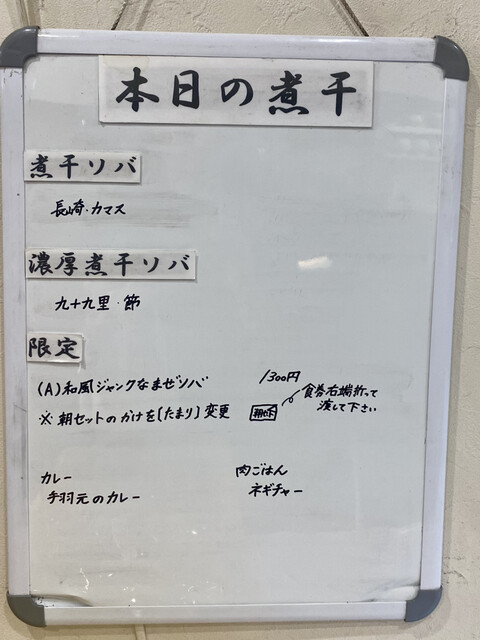 本日の煮干
煮干ソバ
長崎・カマス
濃厚煮干ソバ
九十九里・節
限定
(A)和風ジャンクなまぜソバ 1300円
※朝セットのかけを〔たまり〕変更 食券右端折って
渡して下さい
カレー 肉ごはん
手羽元のカレー ネギチャー